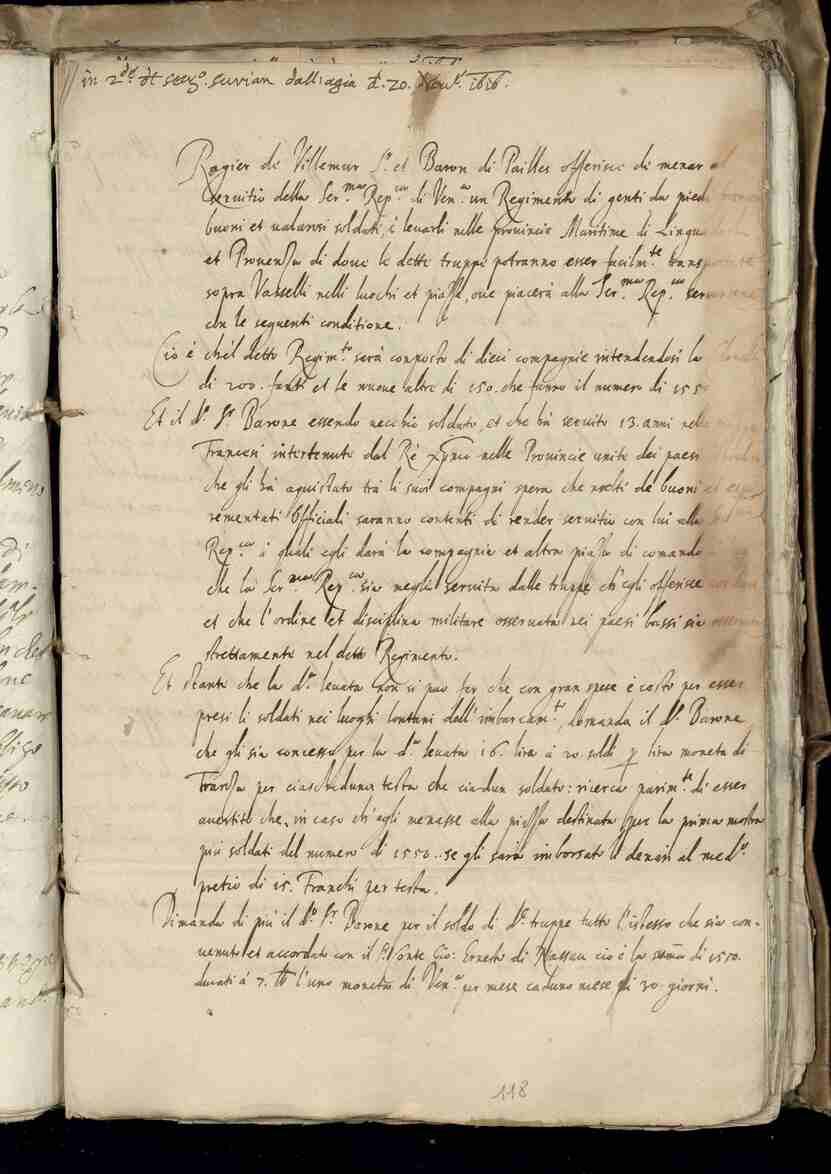 in 2.da di ser.o Surian dall'agia di 20. Nov.e 1616.
Rogier de Villemur S.r et Baron di Pailles offerisce di menar al
servitio della Ser.ma Rep.ca di Ven.a un Regimento di genti da piedi
buoni et valorosi soldati, è levarli nelle provincie Maritime di Lingua
et Provenza di dove le dette truppe potranno esser facilm.te
sopra Vasselli nelli luochi et piazze, ove piacerà alla Ser.ma Rep.ca
con le sequenti conditione.
Cio é ch'el detto Regim.to sarà conposto di dieci compagnie intendendosi la
di 200. fanti et le nuove altre di 150. che fanno il numero di 155
Et il d.o S.r Barone essendo vecchio soldato, et che hà servito 13. anni nelle
Francesi intertenute dal Ré xp.mo nelle Provincie unite dei paesi
che gli hà aquistato trà li suoi compagni spera che molti de buoni et
rementati Officiali saranno contenti di render servitio con lui alla
Rep.ca a quali egli darà la compagnie et altra piazza di comando
che la Ser.ma Rep.ca sia meglio servita dalle truppe ch'egli offerisce
et che l'ordine et disciplina militare osservata nei paesi bassi sia osservata
strettamente nel detto Regimento.
Et stante che la d.a levata non si puo far che con gran spese è costo per esser
presi li soldati nei luoghi lontani dall'imbarcam.to, Domanda il d.o Barone
che gli sia concesso per la d.a levata 16. lira à 20. soldi p lira moneta di
Franza per ciascheduna testa che ciadun soldato: ricerca parim.te di esser
avertito che, in caso ch'egli menasse alla piazza destinata per la prima mostra
piu soldati del numero di 1550. se gli sarà imborsato li denari al med.o
pretio di 15. Franchi per testa.
Dimanda di più il d.o S.r Barone per il soldo di d.e truppe tutto l'istesso che sia con-
venuto et accordato con il S.r Conte Gio: Ernesto di Nassau cio é la soma di 1570.
ducati à 7. l'uno moneta di Ven.a per mese caduno mese di 30. giorni.
118